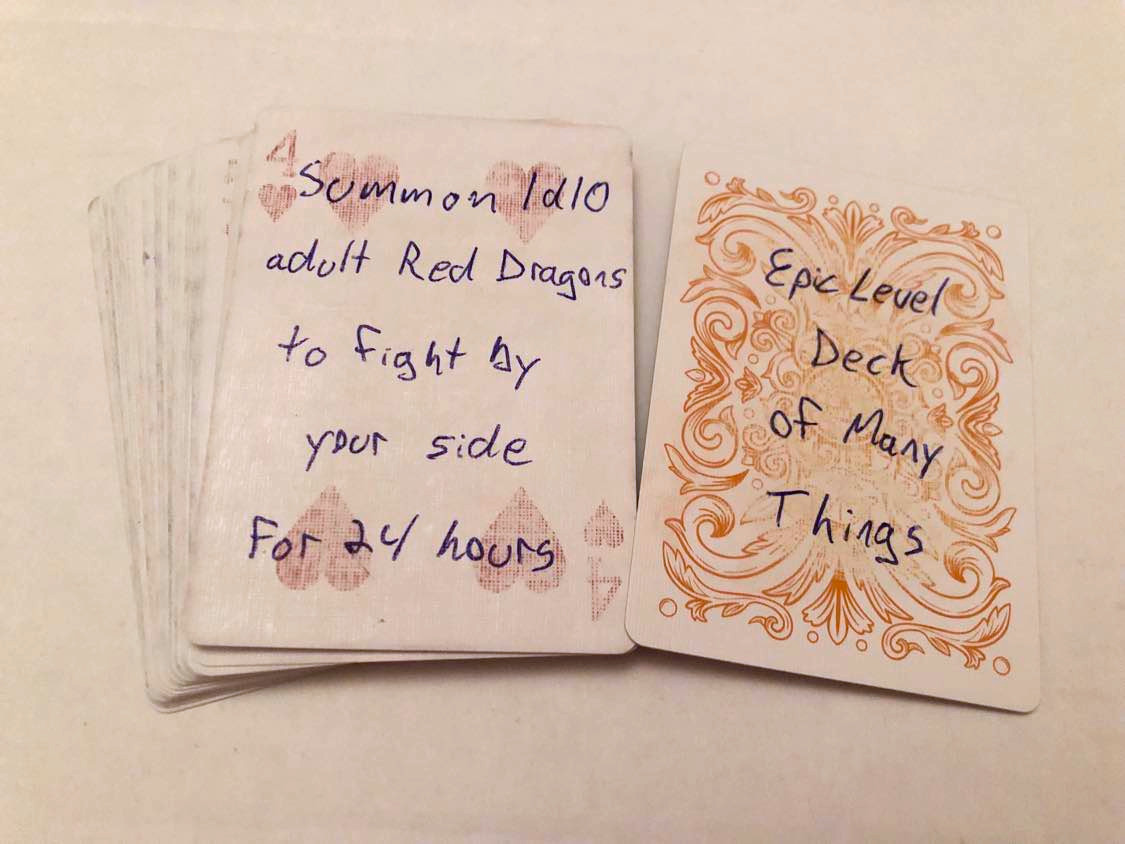 4
Summon 1d10
adult Red Dragons
to fight by
your side
For 24 hours
4
Epic Level
Deck
of Many
Things